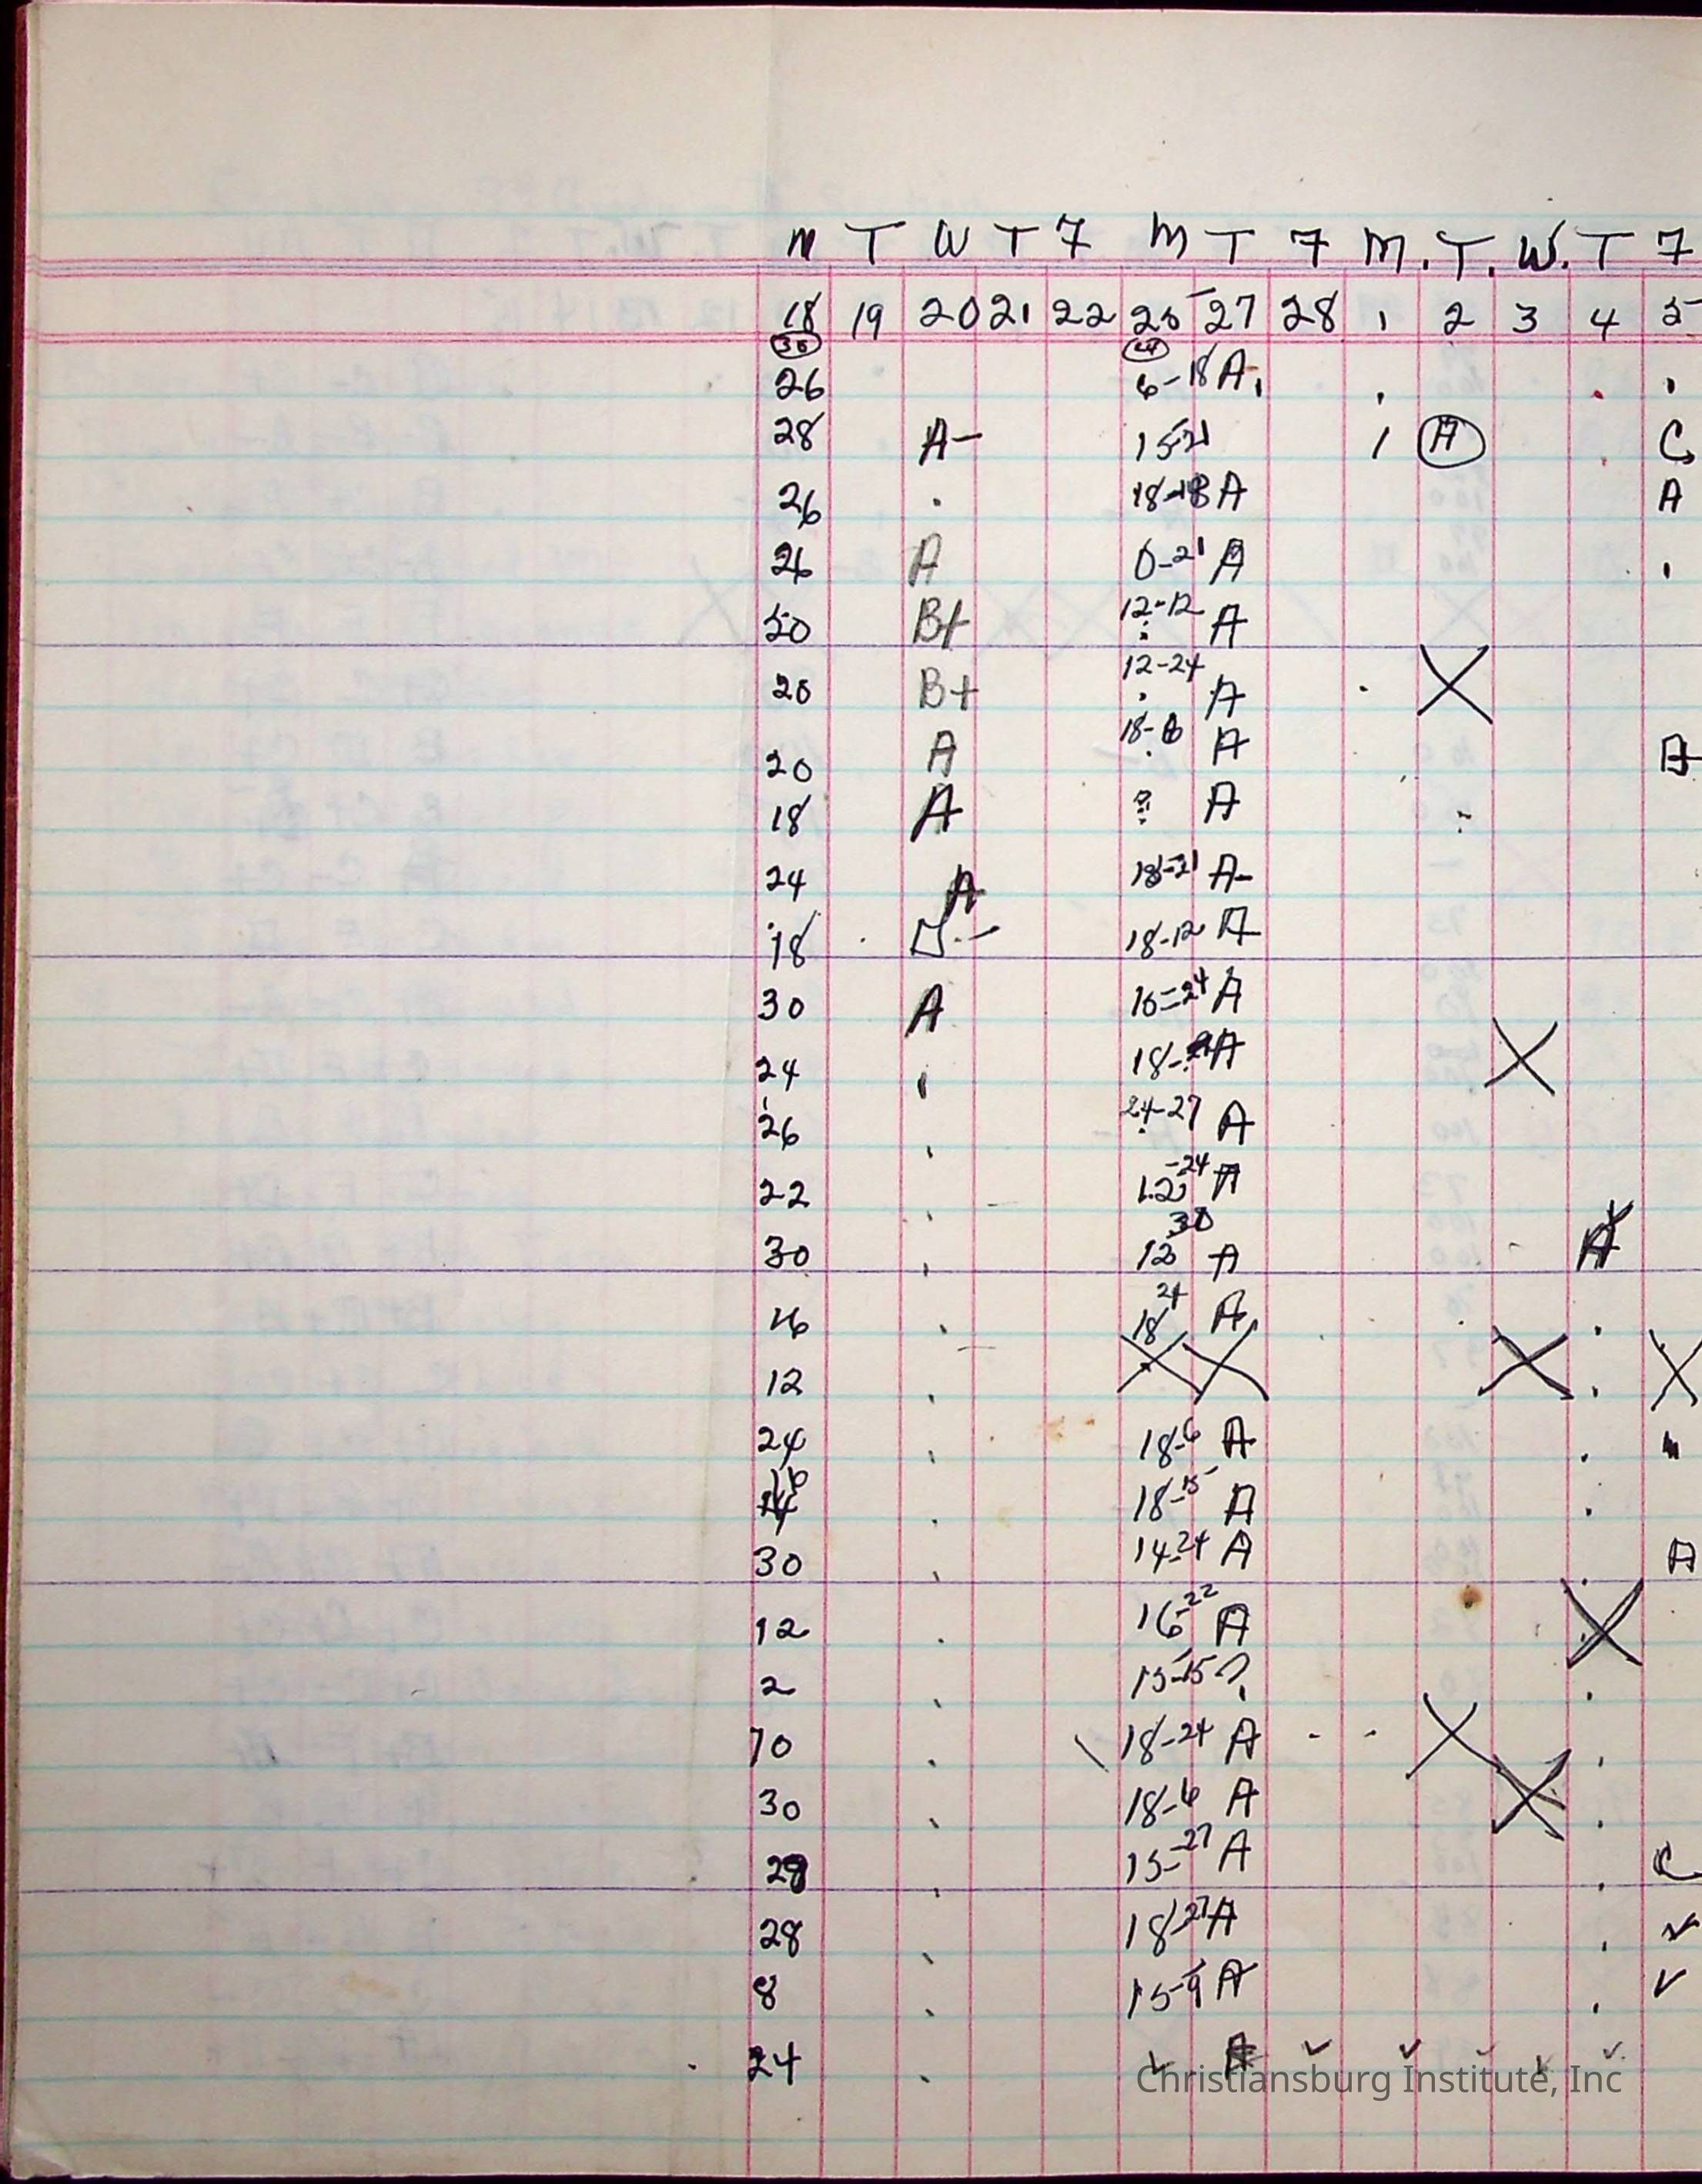 M T W T F M T F M. T. W. T F
18 19 20 21 22 25 27 28 1 2 3 4 5
30
26 6-18 A
28 A- 15-21 A C
26 18-18 A A
26 A 0-21 A
50 B+ 12-12 A
20 B+ 12-24 A
20 A 18-6 A A
18 A ? A
24 A 18-21 A-
18 18-12 A
30 A 16-24 A
24 18- A
26 24-27 A
22 -24 A
30 12 30 A A
16 18 21 A
12
24 18-6 A
16 18-15 A
30 14-24 A A
12 16-22 A
2 15-15 ?
70 18-24 A
30 18-6 A
28 15-27 A C
28 18-27 A ✓
8 15-9 A ✓
24 ✓ A ✓ ✓ ✓ ✓ ✓
Christiansburg Institute, Inc